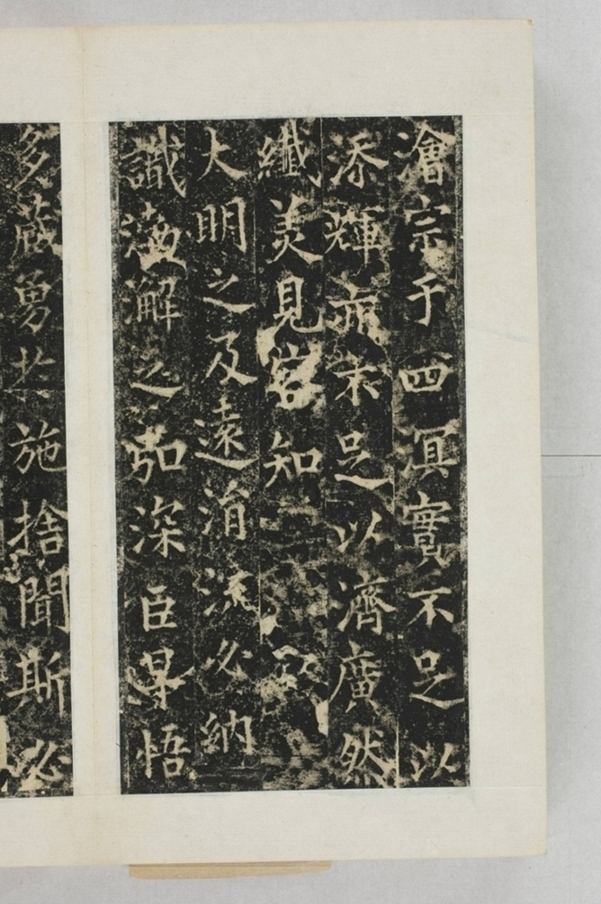 澮宗于四溟實不足以
添輝亦未足以濟廣然
纖美見容知
大明之及遠涓流必納
識海澥之弘深臣某悟
多蔵勇於施捨聞斯必